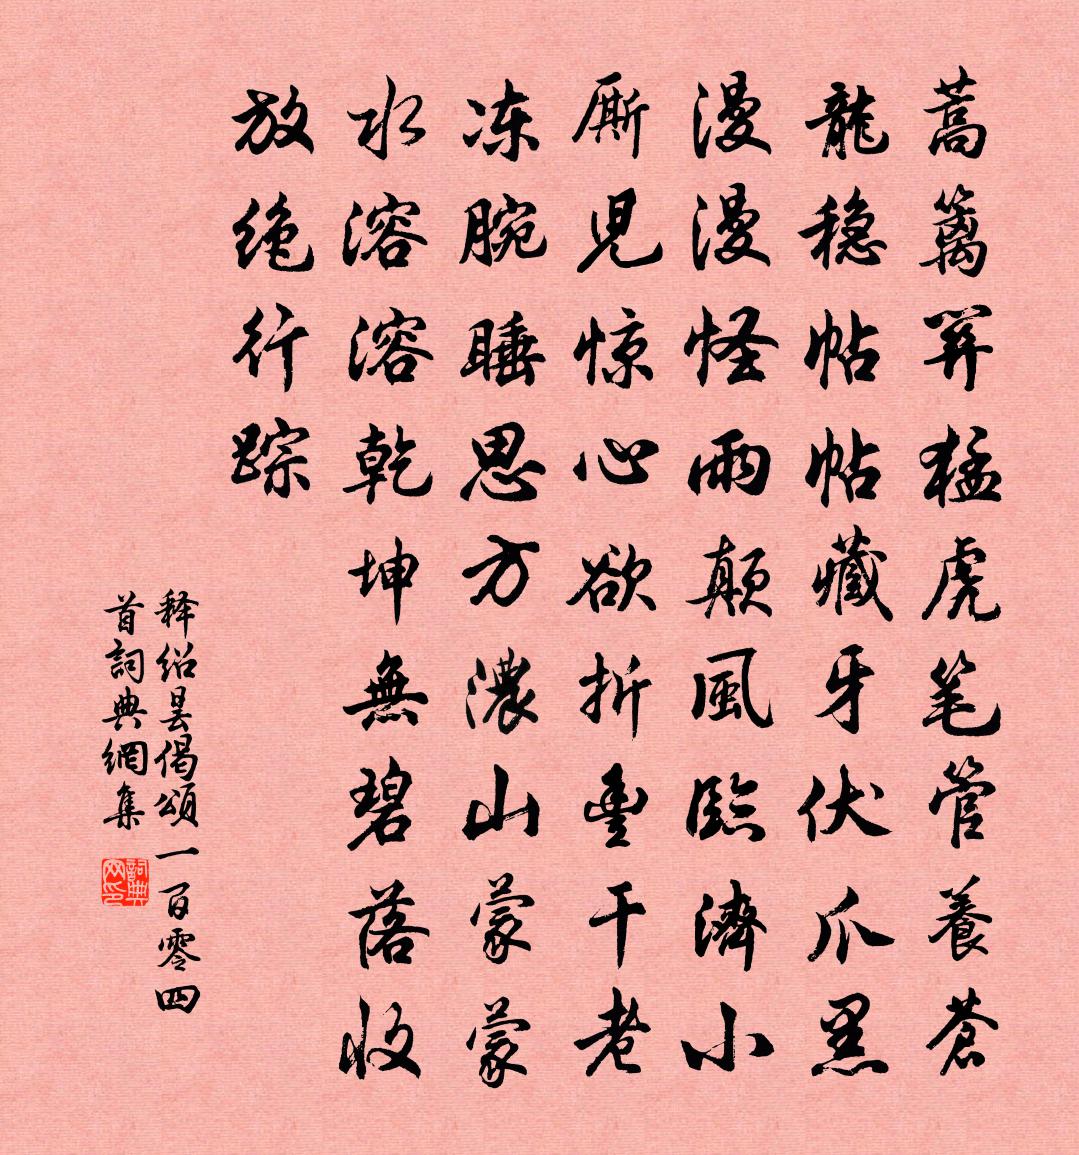 蒿篱猛虎笔管養蒼
龍稳帖帖藏牙伏爪黑
漫漫怪雨颠風臨濟小
厮兒惊心欲折豐干老
冻腕睡思方濃山蒙蒙
水溶溶乾坤無碧落收
放绝行踪
释绍昙偈頌一百零四
首詞典網集
詞典网印